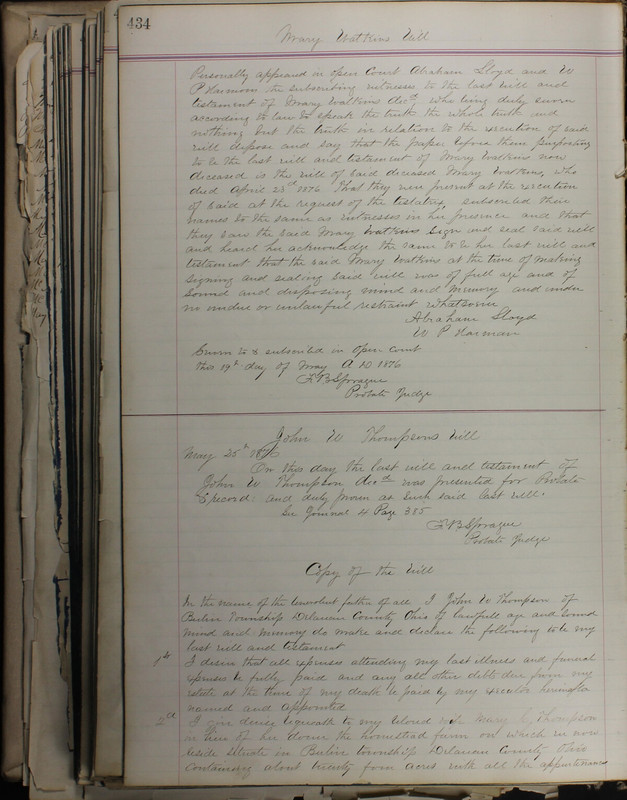 434
Mary Watkins Will
Personally appeared in open Court Abraham Lloyd and W
P Harmon the subscribing witnesses to the last will and
testament of Mary Watkins Decd who being duly sworn
according to law to speak the truth the whole truth and
nothing but the truth in relation to the execution of said
will depose and say that the paper before them purporting
to be the last will and testament of Mary Watkins now
deceased is the will of said deceased Mary Watkins, who
died April 23d 1876 That they were present at the execution
of said at the request of the testatrix, subscribed their
names to the same as witnesses in her presence and that
they saw the said Mary Watkins sign and seal said will
and heard her acknowledge the same to be her last will and
testament that the said Mary Watkins at the time of making
signing and sealing said will was of full age and of
sound and disposing mind and memory and under
no undue or unlawful restraint whatsoever
Abraham Lloyd
W P Harman
Sworn to & subscribed in open court
this 19th day of May A D 1876
F B Sprague
Probate Judge
John W Thompsons Will
May 25th 1876
On this day the last will and testament of
John W Thompson Decd was presented for Probate
& record and duly proven as such said last will.
See Journal 4 Page 385
F B Sprague
Probate Judge
Copy of the Will
In the name of the benevolent father of all I John W Thompson of
Berlin Township Delaware County Ohio of lawfull age and sound
mind and memory do make and declare the following to be my
last will and testament
1st I desire that all expenses attending my last illness and funeral
expenses be fully paid and any all other debts due from my
estate at the time of my death be paid by my executor hereinafter
named and appointed
2d I give devise bequeath to my beloved wife Mary Thompson
in lieu of her dower the homestead farm on which we now
reside situate in Berlin township Delaware County Ohio
containing about twenty four acres with all the appurtenances